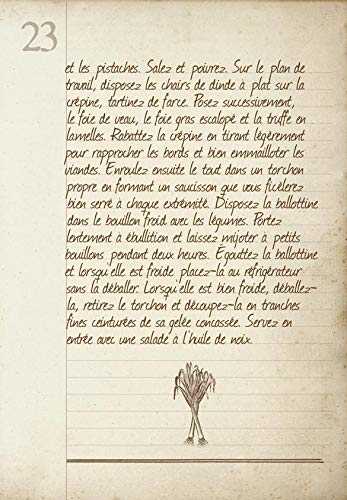 23
et les pistaches. Salez et poivrez. Sur le plan de
travail, disposez les chairs de dinde à plat sur la
crêpine, tartinez de farce. Posez successivement,
le foie de veau, le foie gras escalopé et la truffe en
lamelles. Rabattez la crépine en tirant légèrement
pour rapprocher les bords et bien emmailloter les
viandes. Enroulez ensuite le tout dans un torchon
propre en formant un saucisson que vous ficèlerez
bien serré à chaque extrémité. Disposez la ballottine
dans le bouillon froid avec les légumes. Portez
lentement à ébullition et laissez mijoter à petits
bouillons pendant deux heures. Égouttez la ballottine
et lorsqu'elle est froide placez-la au réfrigérateur
sans la déballer. Lorsqu'elle est bien froide, déballez-
la, retirez le torchon et découpez-la en tranches
fines ceinturées de sa gelée concassée. Servez en
entrée avec une salade à l'huile de noix.